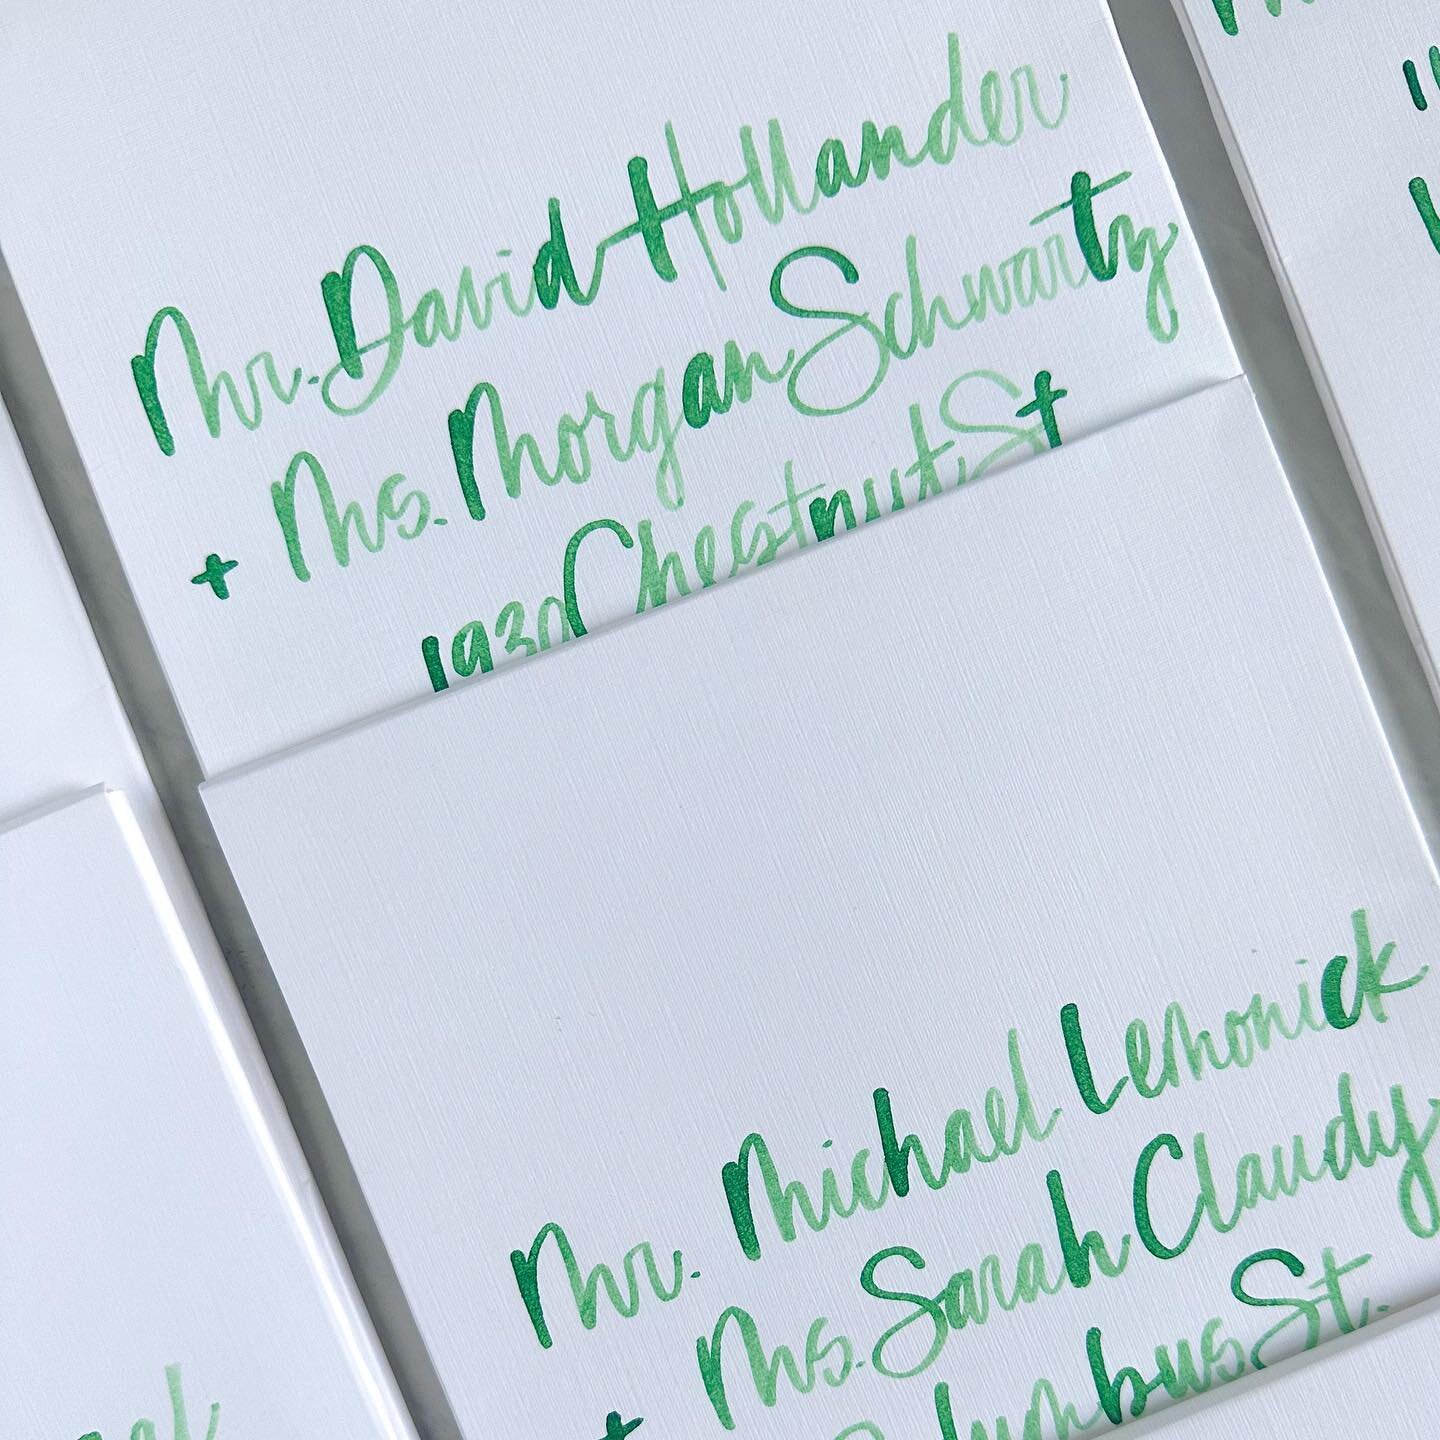 Mr. David Hollander
+ Ms. Morgan Schwartz
1930 Chestnut St
Mr. Michael Lemonick
+ Ms. Sarah Claudy
St.